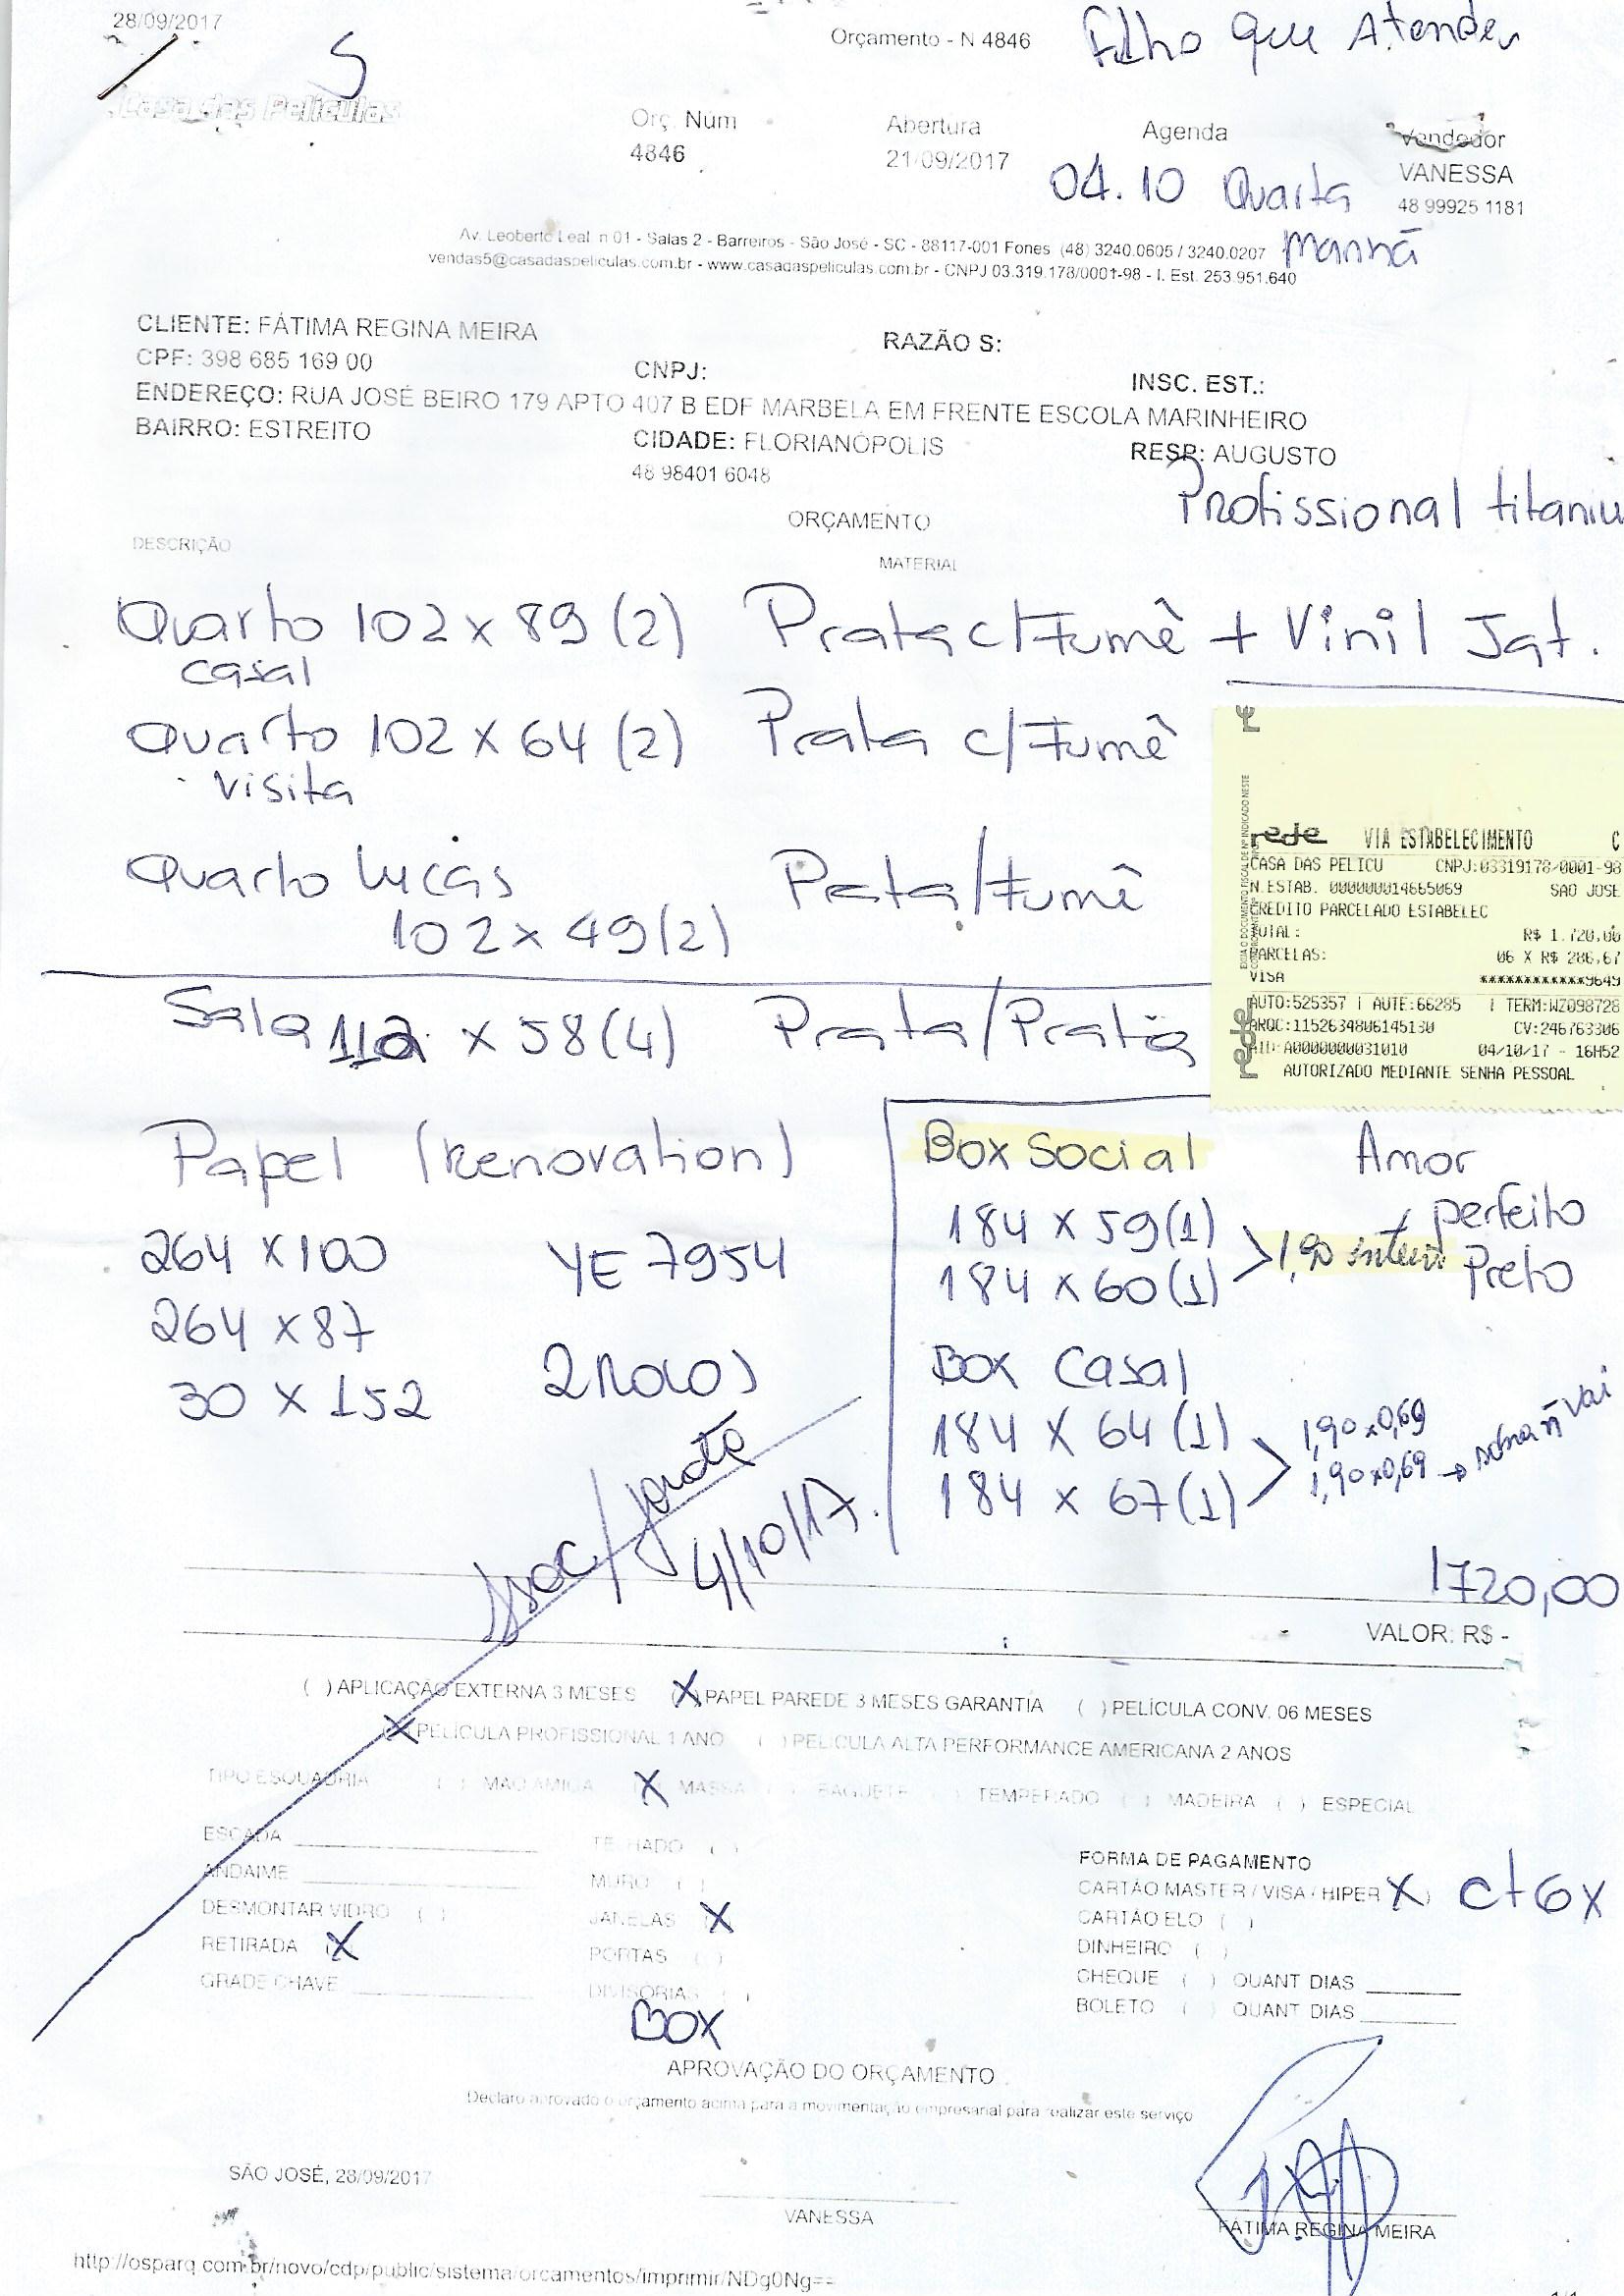 28/09/2017
Orçamento - N 4846
Filho que Atender
5
Casa das Películas
Orç. Num
Abertura
Agenda
Vendedor
4846
21/09/2017
04.10 Quarta
Manhã
VANESSA
48 99925 1181
Av. Leoberto Leal n 01 - Salas 2 - Barreiros - São José - SC - 88117-001 Fones (48) 3240.0605 / 3240.0207
vendas5@casadaspeliculas.com.br - www.casadaspeliculas.com.br - CNPJ 03.319.178/0001-98 - I. Est. 253.951.640
CLIENTE: FÁTIMA REGINA MEIRA
RAZÃO S:
CPF: 398 685 169 00
CNPJ:
INSC. EST.:
ENDEREÇO: RUA JOSÉ BEIRO 179 APTO 407 B EDF MARBELA EM FRENTE ESCOLA MARINHEIRO
BAIRRO: ESTREITO
CIDADE: FLORIANÓPOLIS
RESP: AUGUSTO
48 98401 6048
Profissional titaniu
ORÇAMENTO
DESCRIÇÃO
MATERIAL
Quarto 102 x 89 (2) Prata c/ Fumê + Vinil Jat.
casal
Quarto 102 x 64 (2) Prata c/ Fumê
visita
Quarto Lucas Prata/Fumê
102 x 49 (2)
Sala 112 x 58 (4) Prata/Prata
rede VIA ESTABELECIMENTO C
CASA DAS PELICU CNPJ:03319178/0001-98
N.ESTAB. 000000014665069 SAO JOSE
CREDITO PARCELADO ESTABELEC
TOTAL: R$ 1.720,00
PARCELAS: 06 X R$ 286,67
VISA ************9649
AUTO:525357 | AUTE:66285 | TERM:WZ098728
ARQC:1152634806145130 CV:246763306
AID:A0000000031010 04/10/17 - 16H52
AUTORIZADO MEDIANTE SENHA PESSOAL
rede
Papel (Renovation)
264 x 100 YE 7954
264 x 87
30 x 152 2 Rolos
Box Social
184 x 59 (1)
184 x 60 (1)
> 1,90 inteiro
Amor
perfeito
Preto
Box Casal
184 x 64 (1)
184 x 67 (1)
> 1,90 x 0,69
1,90 x 0,69 → ñ vai
4/10/17.
1720,00
VALOR: R$ -
( ) APLICAÇÃO EXTERNA 3 MESES (X) PAPEL PAREDE 3 MESES GARANTIA ( ) PELÍCULA CONV. 06 MESES
(X) PELÍCULA PROFISSIONAL 1 ANO ( ) PELICULA ALTA PERFORMANCE AMERICANA 2 ANOS
TIPO ESQUADRIA ( ) MAO AMIGA (X) MASSA ( ) BAGUETE ( ) TEMPERADO ( ) MADEIRA ( ) ESPECIAL
ESCADA
ANDAIME
DESMONTAR VIDRO ( )
RETIRADA (X)
GRADE CHAVE
TELHADO ( )
MURO ( )
JANELAS (X)
PORTAS ( )
DIVISORIAS ( )
BOX
FORMA DE PAGAMENTO
CARTÃO MASTER / VISA / HIPER (X) Ct 6x
CARTÃO ELO ( )
DINHEIRO ( )
CHEQUE ( ) QUANT DIAS
BOLETO ( ) QUANT DIAS
APROVAÇÃO DO ORÇAMENTO
Declaro aprovado o orçamento acima para a movimentação empresarial para realizar este serviço
SÃO JOSÉ, 28/09/2017
VANESSA
FÁTIMA REGINA MEIRA
http://osparq.com.br/novo/cdp/public/sistema/orcamentos/imprimir/NDg0Ng==
1/1